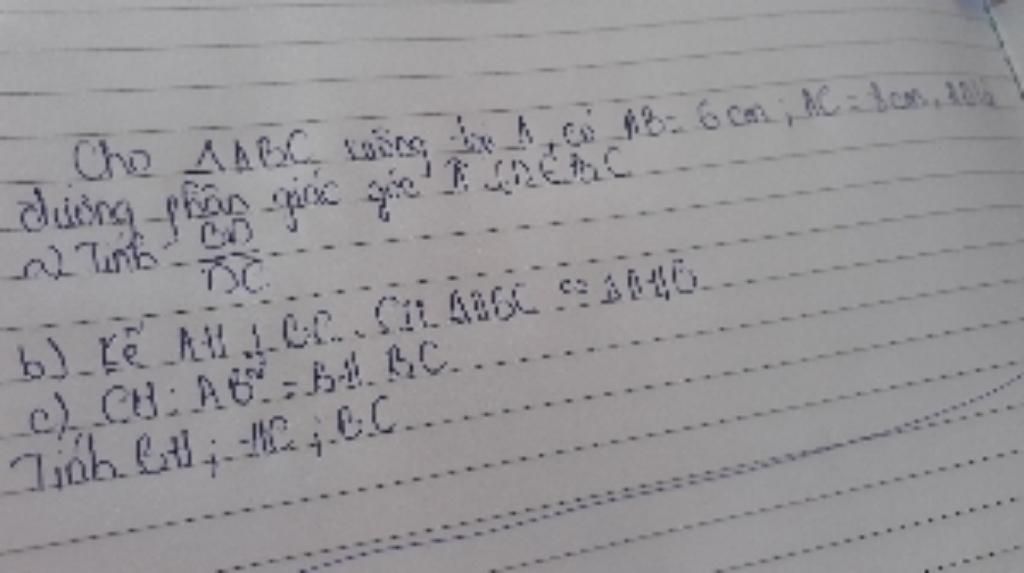 Cho ΔABC vuông tại A, có AB = 6cm; AC = 8cm.
đường phân giác góc A, D ∈ BC
a) Tính BD/DC
b) Kẻ AH ⊥ BC. CM ΔABC ∽ ΔHB
c) CM: AB² = BH.BC
Tính BH; HC; BC